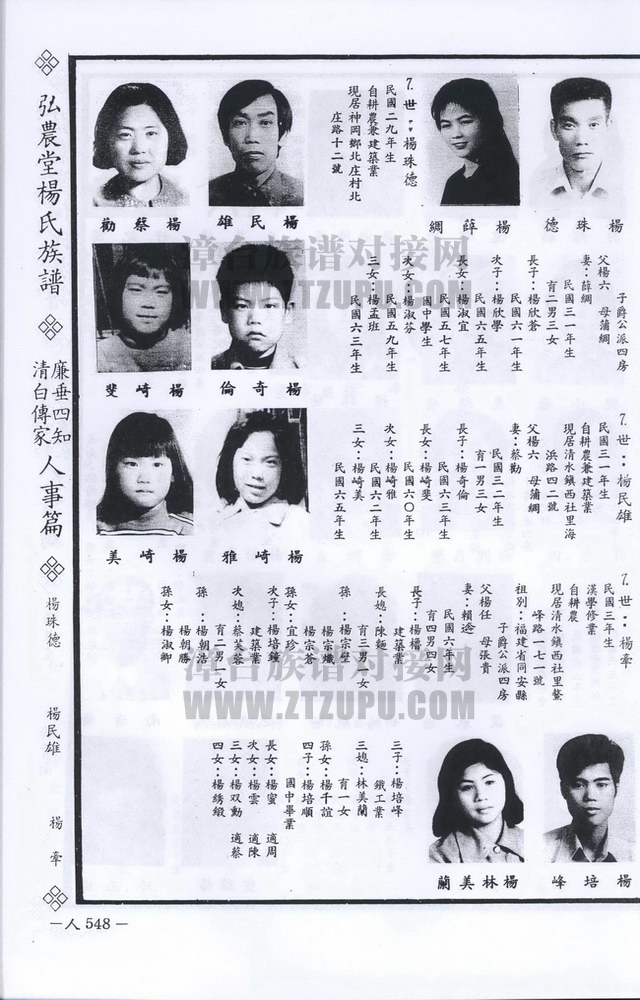 弘農堂楊氏族譜
廉垂四知
清白傳家
人事篇
楊珠德
楊民雄
楊牽
－人548－
楊珠德
楊薛綢
7.世：楊珠德
民國二九年生
自耕農兼建築業
現居神岡鄉北庄村北
庄路十二號
楊民雄
楊蔡勸
子爵公派四房
父楊六 母蒲綢
妻：薛綢
民國三一年生
育二男三女
長子：楊欣蒼
民國六一年生
次子：楊欣學
民國六五年生
長女：楊淑宜
民國五七年生
國中學生
次女：楊淑芬
民國五九年生
三女：楊孟班
民國六三年生
楊奇倫
楊崎斐
7.世：楊民雄
民國三一年生
自耕農兼建築業
現居清水鎮西社里海
浜路四二號
父楊六 母蒲綢
妻：蔡勸
民國三二年生
育一男三女
長子：楊奇倫
民國六三年生
長女：楊崎斐
民國六〇年生
次女：楊崎雅
民國六二年生
三女：楊崎美
民國六五年生
楊崎雅
楊崎美
7.世：楊牽
民國三年生
漢學修業
自耕農
現居清水鎮西社里鰲
峰路一七一號
祖別：福建省同安縣
子爵公派四房
父楊任 母張貴
妻：賴
民國六年生
育四男四女
長子：楊
建築業
長媳：陳
育三男一女
孫：楊宗
楊宗熾
楊宗蒼
孫女：宜珍
次子：楊培鐘
建築業
次媳：蔡芙蓉
育二男一女
孫：楊朝浩
楊朝勝
孫女：楊淑卿
三子：楊培峰
鐵工業
三媳：林美蘭
育一女
孫女：楊千誼
四子：楊培順
國中畢業
長女：楊蜜 適周
次女：楊雲 適陳
三女：楊双動 適蔡
四女：楊綉緞
楊培峰
楊林美蘭
漳台族谱对接网
WWW.ZTZUPU.COM
漳台族谱对接网
WWW.ZTZUPU.COM